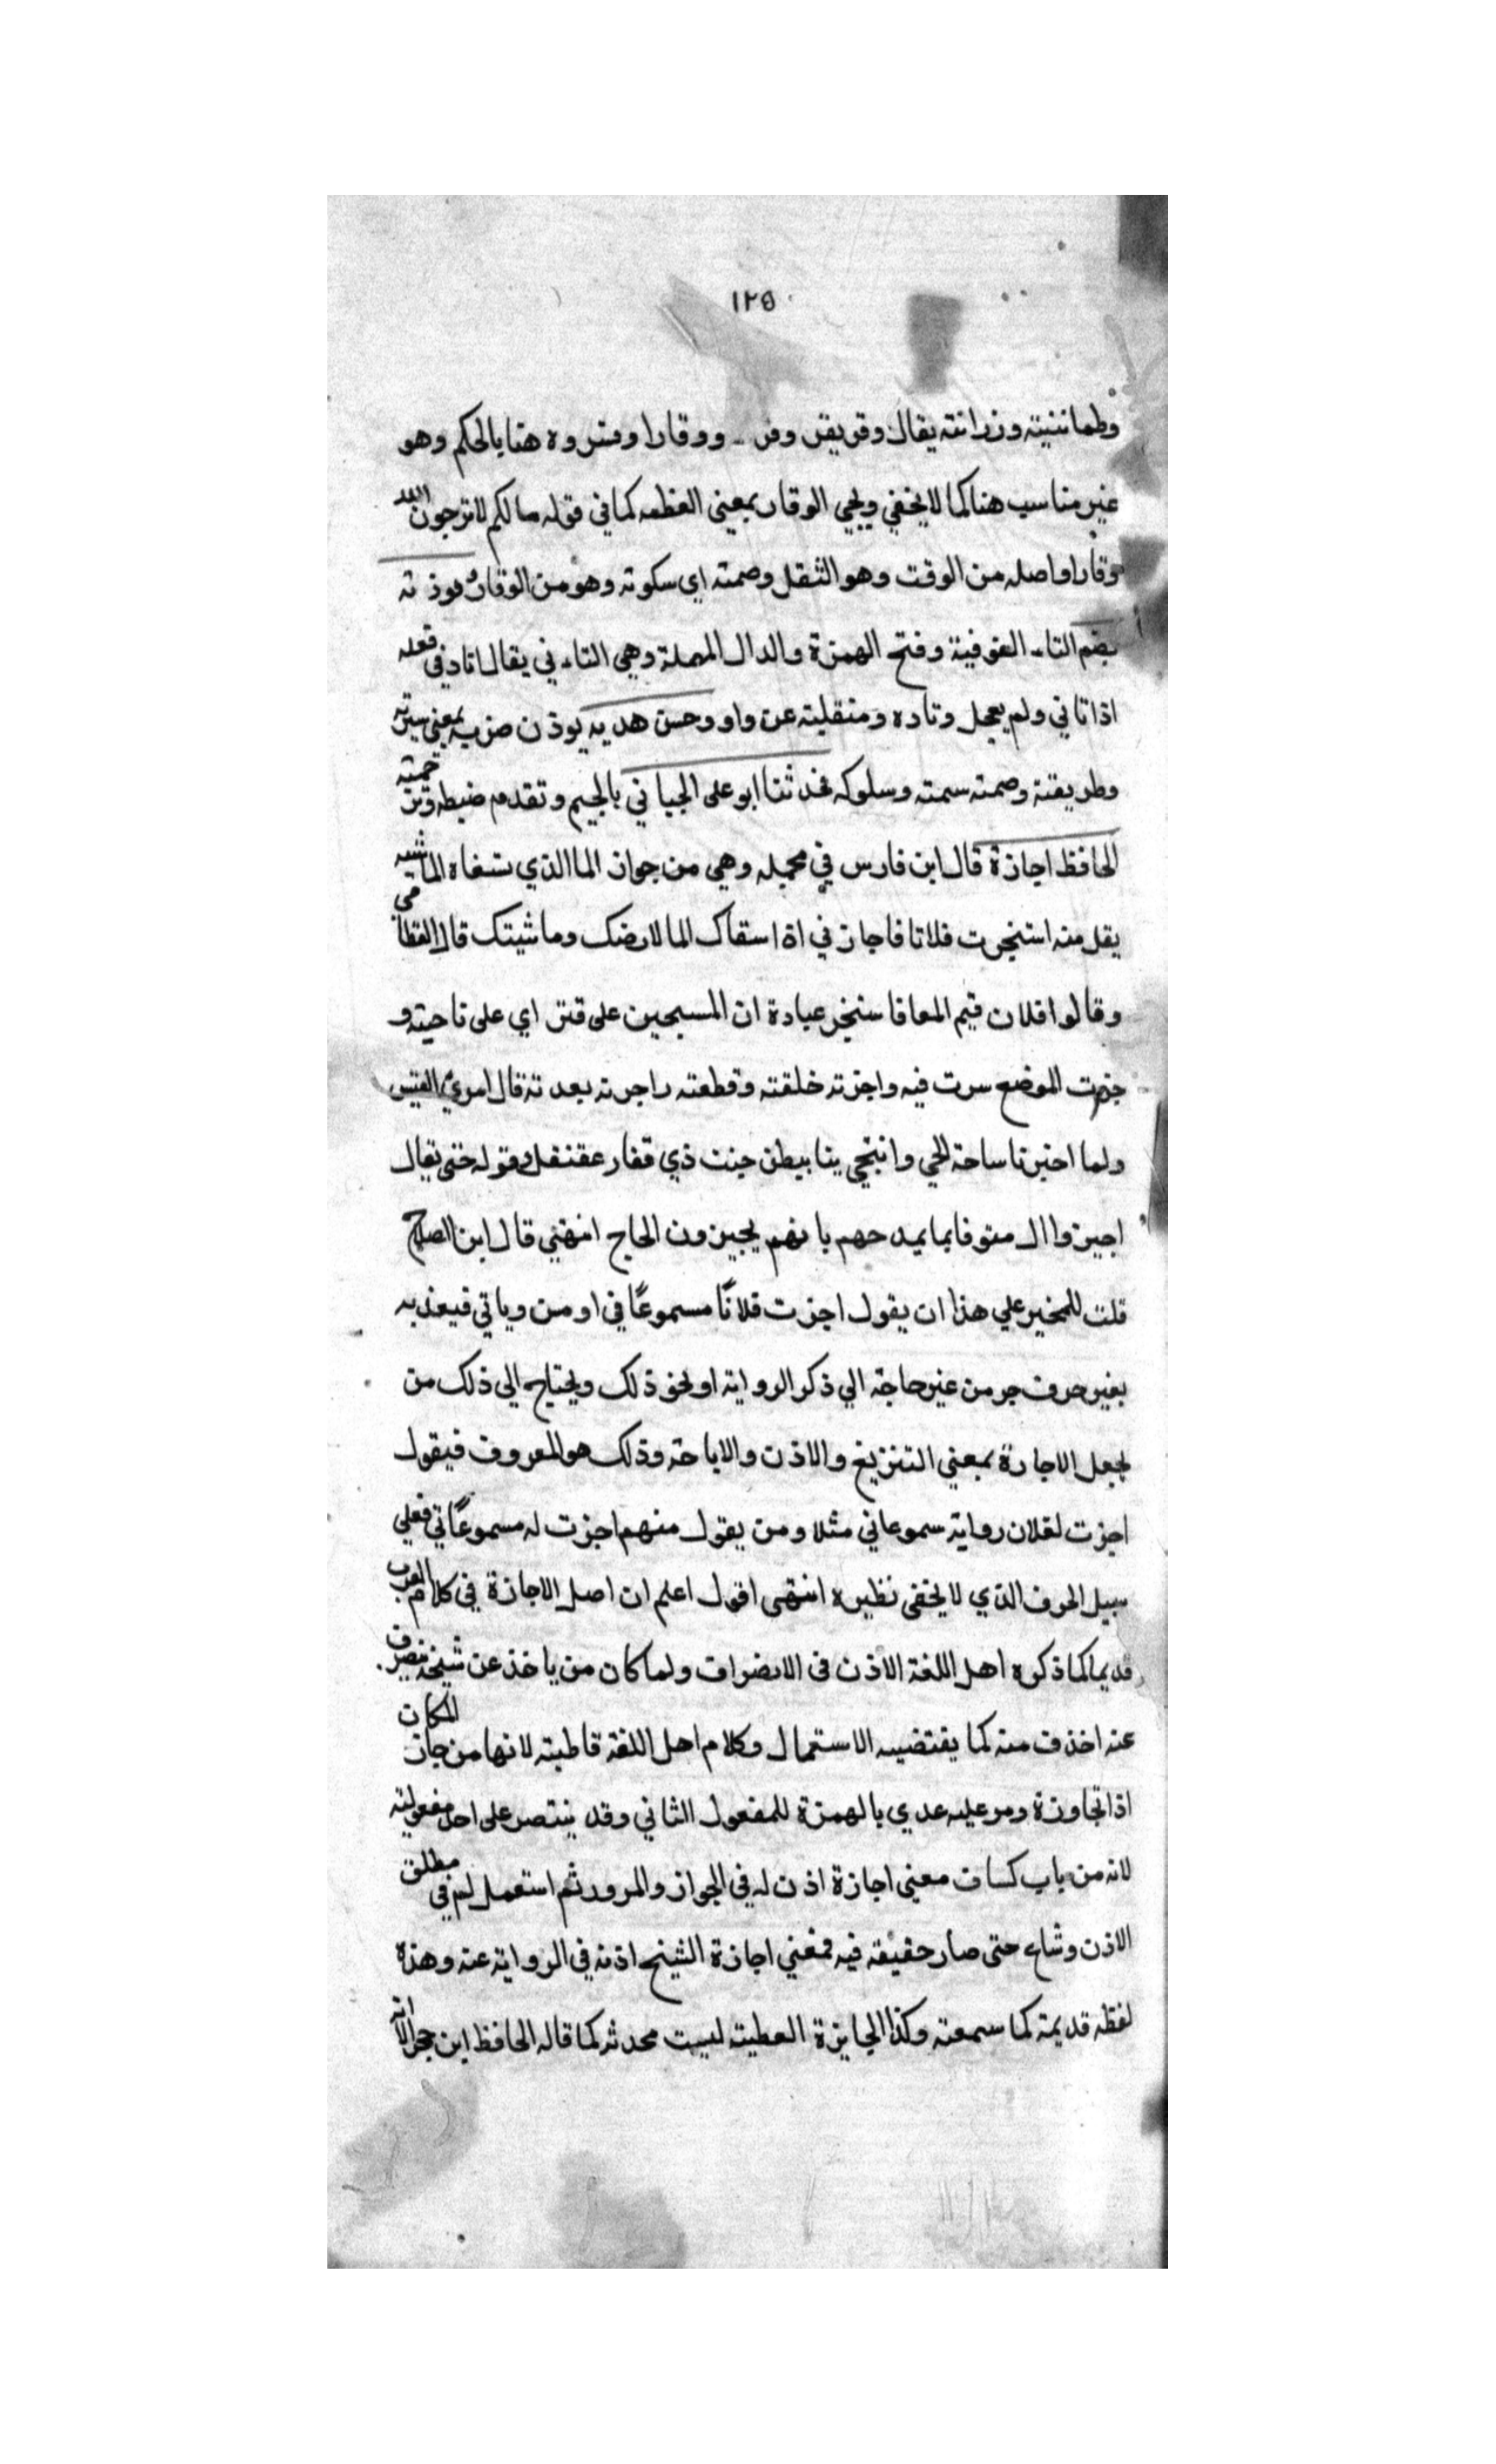 ١٢٥
وطماننيته وزرانته يقال وقر يقر وقر ووقارا وفسروه هنا بالحكم وهو
غير مناسب هنا كما لا يخفي ويجي الوقار بمعني العظمه كما في قوله مالكم لا ترجون الله
وقارا واصله من الوقت وهو الثقل وصمته اي سكوته وهو من الوقار وتوذ ته
بضم التاء الفوفية وفتح الهمزة والدال المهملة وهي التاء ني يقال اتاد في فعله
اذا تاني ولم يعجل وتاده ومنقلبته عن واو وحسن هديه يوذن ضربه بمعني سيرته
وطريقته وصمته سمته وسلوكه فحدثنا ابو على الجياني بالجيم وتقدم ضبطه وترجمته
الحافظ اجازة قال ابن فارس في مجمله وهي من جواز الما الذي تسقاه الماشيه
يقل منه استجرت فلانا فاجازني اذا اسقاك الما لارضك وماشيتك قال القطامي
وقالوا فلان قيم المعافا ستجز عبادة ان المسبحين على قتر اي على ناحيته و
جزت الموضع سرت فيه واجزته خلقته وقطعته راجزته بعد ته قال امرئ القيس
ولما اجتزنا ساحة الحي وانتحي بنا بيطن جنت ذي قفار عقنقل وقوله حتى يقال
اجيزوا ال صوفا بما يمدحهم بانهم يجيزون الحاج انتهني قال ابن الصلاح
قلت للمخير علي هذا ان يقول اجزت فلانًا مسموعًا في او من وياتي فيعذ به
بغير حرف جر من غير حاجة الي ذكر الرواية او نحو ذلك ويحتاج الي ذلك من
يجعل الاجارة بمعني التنزيغ والاذن والاباحة وذلك هو المعروف فيقول
اجزت لفلان رواية سموعاني مثلا ومن يقول منهم اجزت له مسموعًا تي فعلي
سبيل الحرف الذي لا يخفى نظيره انتهى اقول اعلم ان اصل الاجازة في كلام العرب
قديما كما ذكره اهل اللغة الاذن في الانضراف ولما كان من ياخذ عن شيخه ينصرف
عنه اخذف منه كما يقتضيه الاستعمال وكلام اهل اللغة قاطبته لانها من جاز المكان
اذا تجاوزة ومر عليه عدي بالهمزة للمفعول الثاني وقد ينتصر على احد مفعوليته
لانه من باب كسات معني اجازة اذن له في الجواز والمرور ثم استعمل له في مطلق
الاذن وشاء حتى صار حقيقه فيه فمعني اجازة الشيخ اذنه في الرواية عنه وهذه
لفظه قديمة كما سمعته وكذا الجايزة العطيته ليست محدثه كما قاله الحافظ ابن حجر الا انه